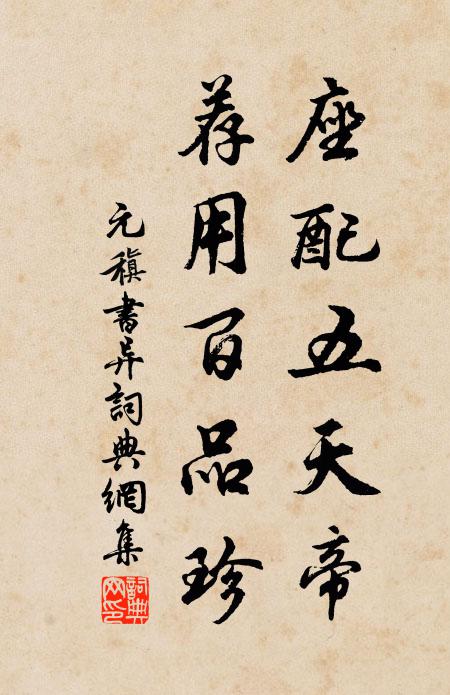 座配五天帝
荐用百品珍
元稹書异詞典網集
詞典網印